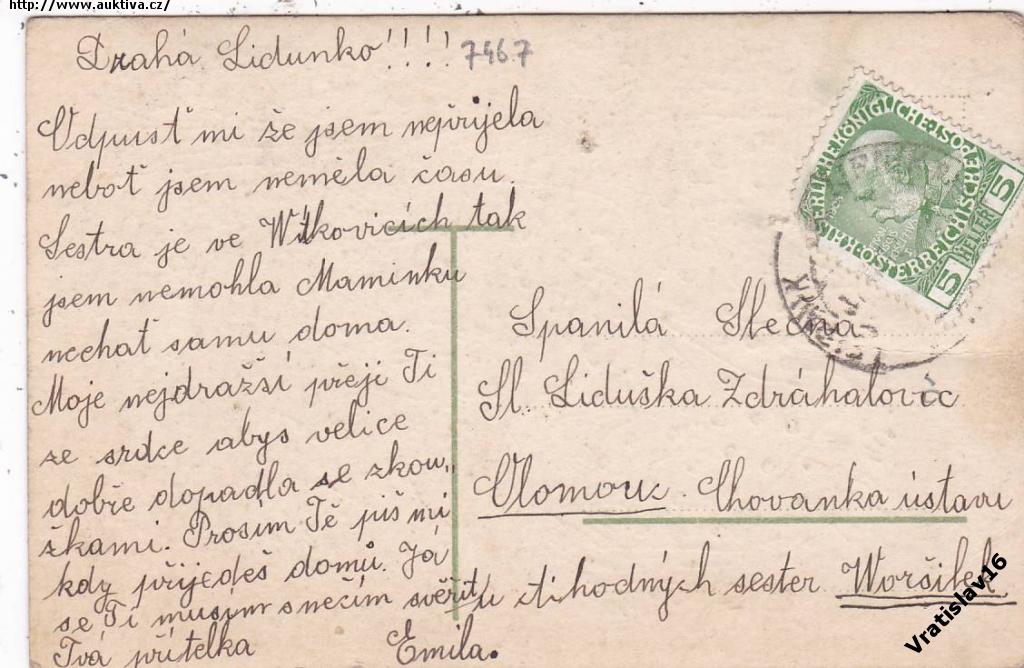 http://www.auktiva.cz/
Drahá Lidunko!!!! 7467
Odpusť mi že jsem nepřijela
neboť jsem neměla času.
Sestra je ve Witkovicích tak
jsem nemohla Maminku
nechat samu doma.
Moje nejdražší přeji Ti
ze srdce abys velice
dobře dopadla se zkou„
žkami. Prosím Tě piš mi
kdy přijedeš domů. Já
se Ti musím s nečím svěřit
Tvá přítelka Emila.
KAISERLICHE KÖNIGLICHE ÖSTERREICHISCHE POST
5 HELLER 5
Spanilá Slečna
Sl. Liduška Zdráhalovic
Olomouc. Chovanka ústavu
u ctihodných sester Woršilek
Vratislav16